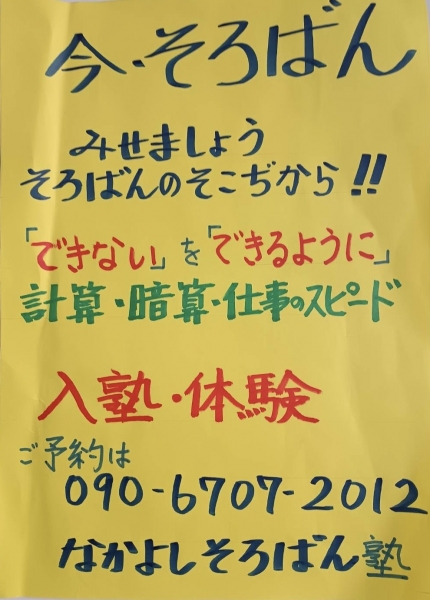 今・そろばん
みせましょう
そろばんのそこぢから!!
「できない」を「できるように」
計算・暗算・仕事のスピード
入塾・体験
ご予約は
090-6707-2012
なかよしそろばん塾